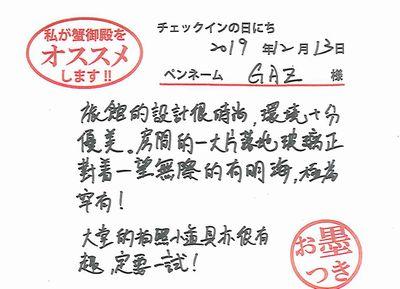 私が蟹御殿を
オススメ
します!!
チェックインの日にち
2019年12月13日
ペンネーム GAZ 様
旅館的設計很時尚,環境十分
優美。房間的一大片落地玻璃正
對着一望無際的有明海,極為
罕有!
大堂的拍照小道具亦很有
趣,定要一試!
お墨
つき